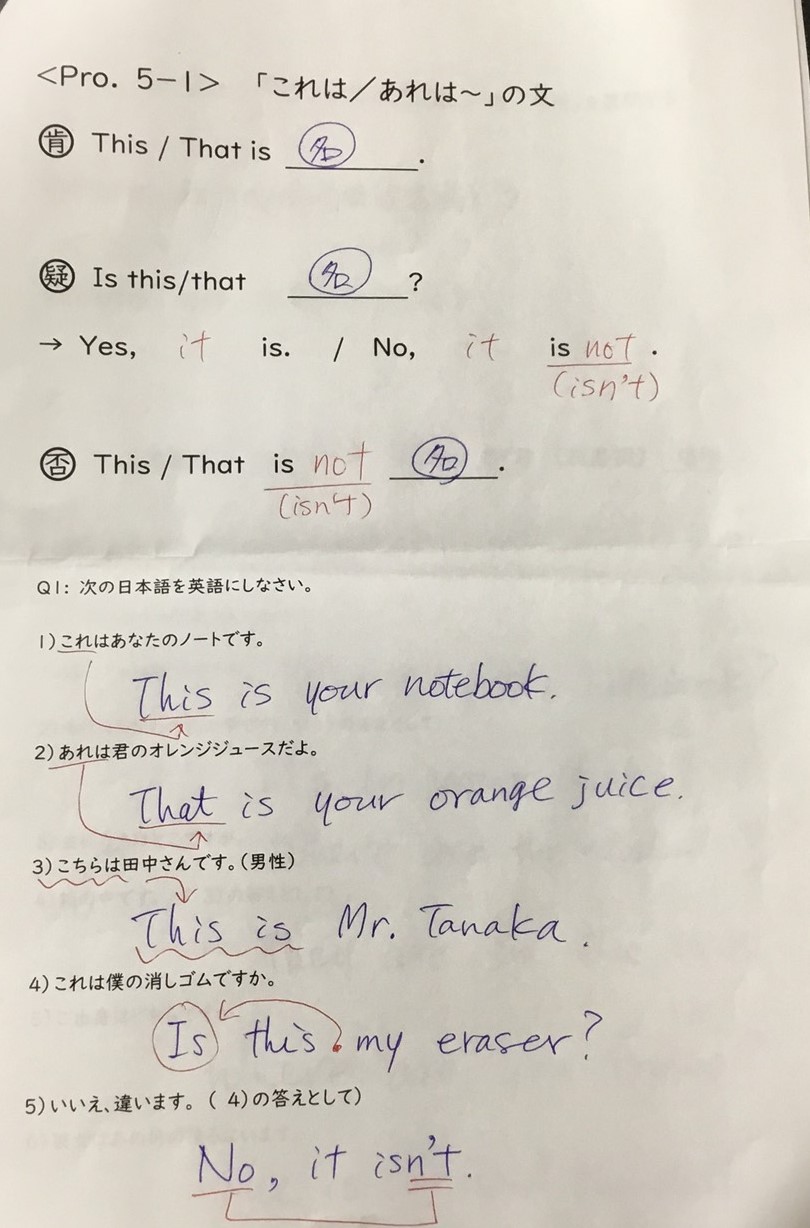 <Pro. 5-1> 「これは/あれは~」の文
肯 This / That is 名.
疑 Is this/that 名?
→ Yes, it is. / No, it is not.
(isn't)
否 This / That is not 名.
(isn't)
Q1: 次の日本語を英語にしなさい。
1)これはあなたのノートです。
This is your notebook.
2)あれは君のオレンジジュースだよ。
That is your orange juice.
3)こちらは田中さんです。(男性)
This is Mr. Tanaka.
4)これは僕の消しゴムですか。
Is this my eraser?
5)いいえ、違います。( 4)の答えとして)
No, it isn't.